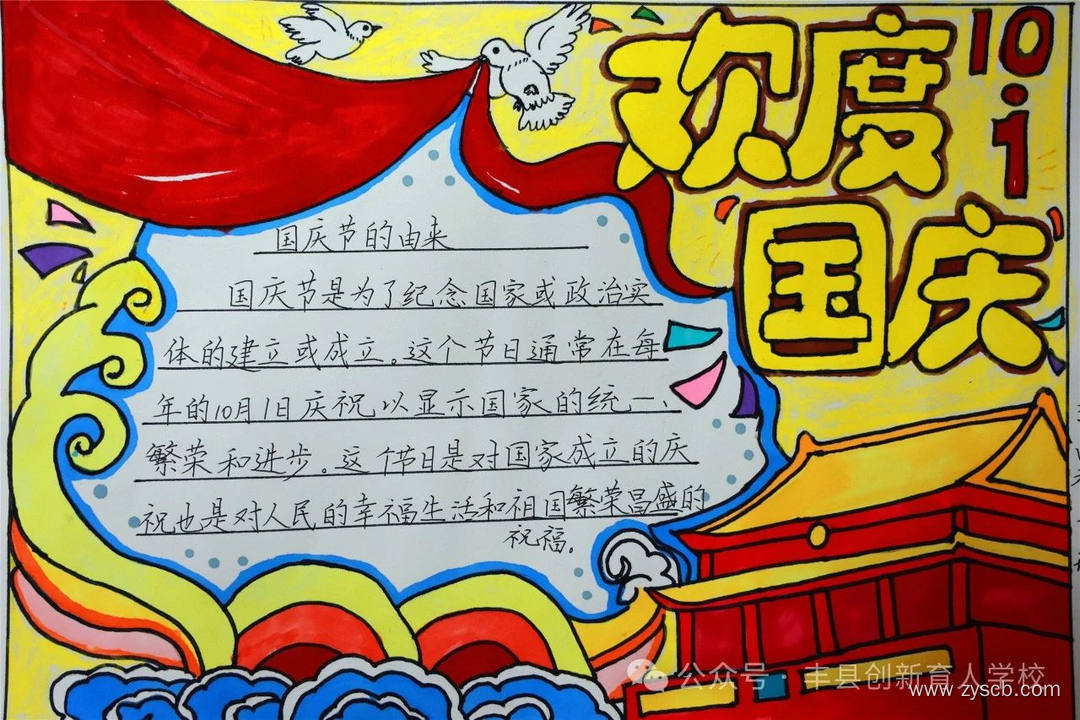 欢度
国庆
10.1
国庆节的由来
国庆节是为了纪念国家或政治实
体的建立或成立。这个节日通常在每
年的10月1日庆祝以显示国家的统一、
繁荣和进步。这个节日是对国家成立的庆
祝也是对人民的幸福生活和祖国繁荣昌盛的
祝福。
公众号·丰县创新育人学校
www.zyscb.com